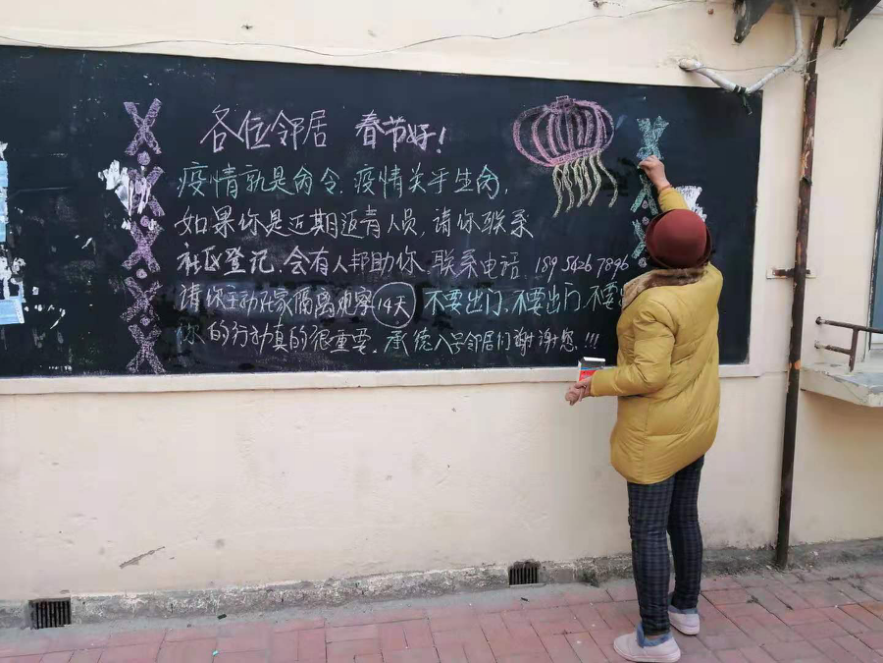 各位邻居 春节好!
疫情就是命令.疫情关乎生命,
如果你是近期返青人员,请你联系
社区登记.会有人帮助你.联系电话 189 5426 7896
请你主动居家隔离观察14天 不要出门,不要出门,不要
你的行动真的很重要.承德八号邻居们谢谢您!!!